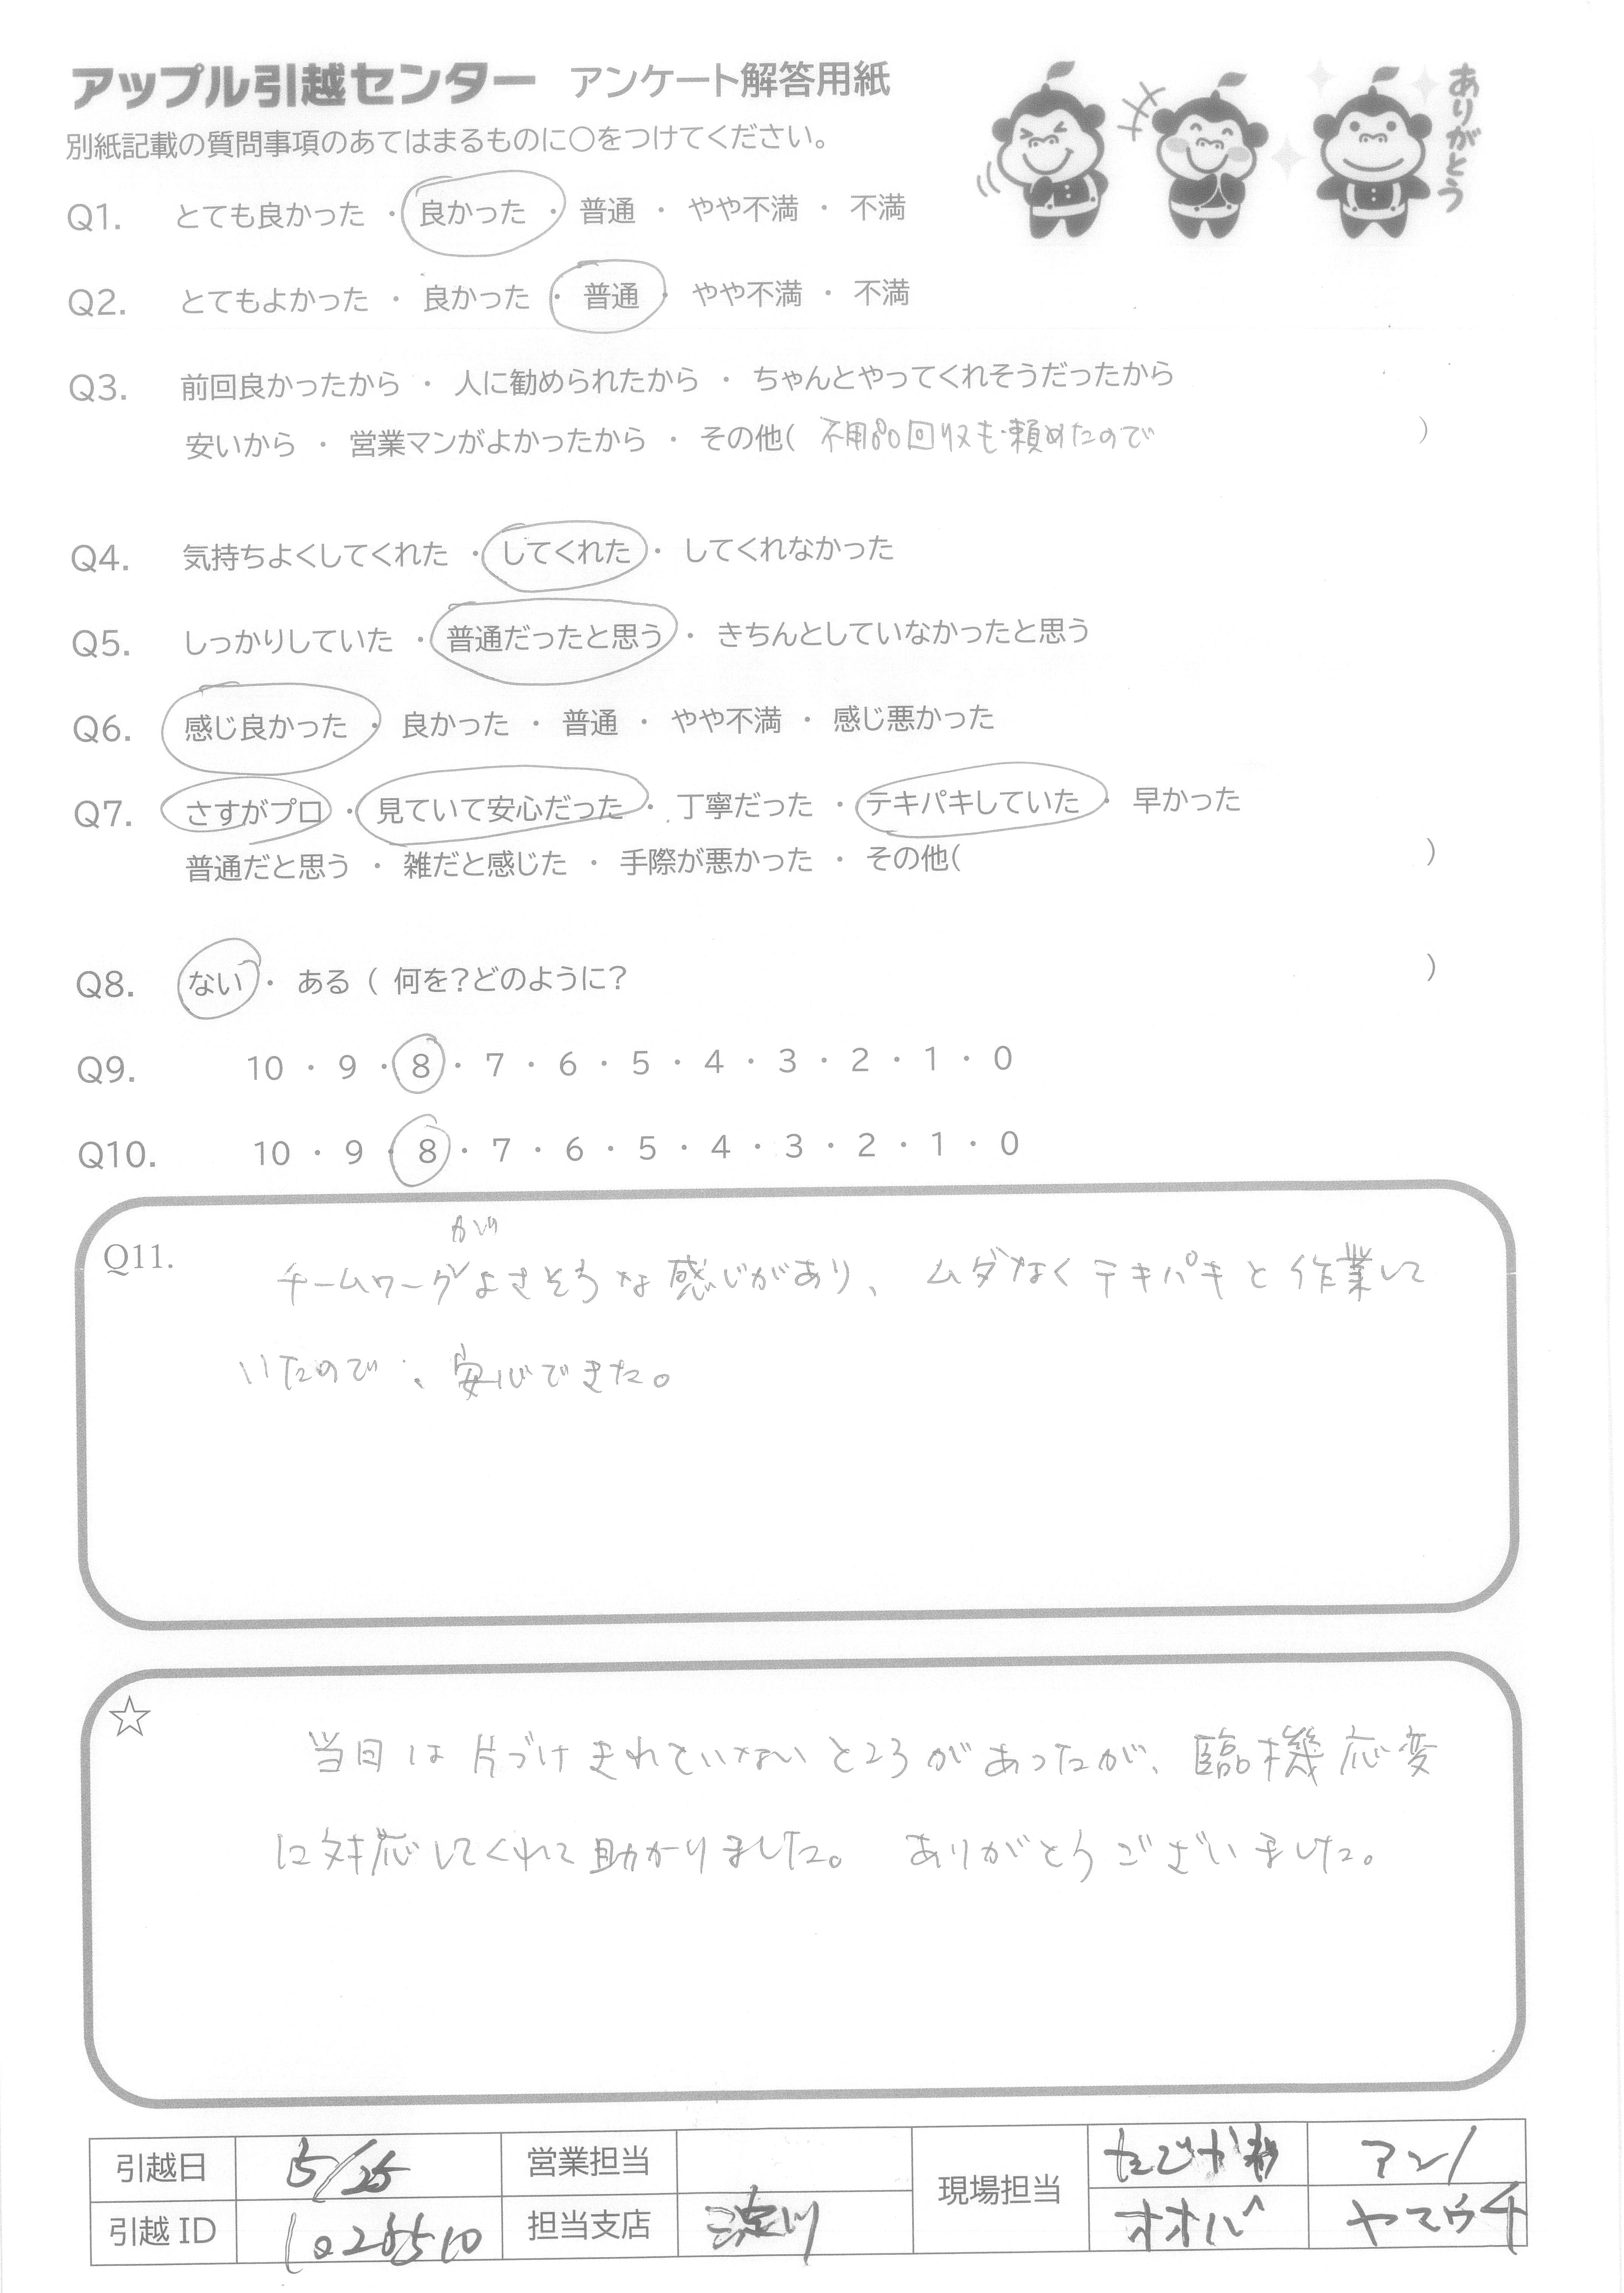 アップル引越センター アンケート解答用紙
ありがとう
別紙記載の質問事項のあてはまるものに○をつけてください。
Q1. とても良かった ・ 良かった ・ 普通 ・ やや不満 ・ 不満
Q2. とてもよかった ・ 良かった ・ 普通 ・ やや不満 ・ 不満
Q3. 前回良かったから ・ 人に勧められたから ・ ちゃんとやってくれそうだったから
安いから ・ 営業マンがよかったから ・ その他( 不用品回収も頼めたので )
Q4. 気持ちよくしてくれた ・ してくれた ・ してくれなかった
Q5. しっかりしていた ・ 普通だったと思う ・ きちんとしていなかったと思う
Q6. 感じ良かった ・ 良かった ・ 普通 ・ やや不満 ・ 感じ悪かった
Q7. さすがプロ ・ 見ていて安心だった ・ 丁寧だった ・ テキパキしていた ・ 早かった
普通だと思う ・ 雑だと感じた ・ 手際が悪かった ・ その他( )
Q8. ない ・ ある ( 何を?どのように? )
Q9. 10 ・ 9 ・ 8 ・ 7 ・ 6 ・ 5 ・ 4 ・ 3 ・ 2 ・ 1 ・ 0
Q10. 10 ・ 9 ・ 8 ・ 7 ・ 6 ・ 5 ・ 4 ・ 3 ・ 2 ・ 1 ・ 0
Q11. チームワークがよさそうな感じがあり、ムダなくテキパキと作業して
いたので、安心できた。
☆ 当日は片づけきれていないところがあったが、臨機応変
に対応してくれて助かりました。ありがとうございました。
引越日 5/25 営業担当 現場担当 アン
引越ID 担当支店 淀川 オオバ ヤマウチ